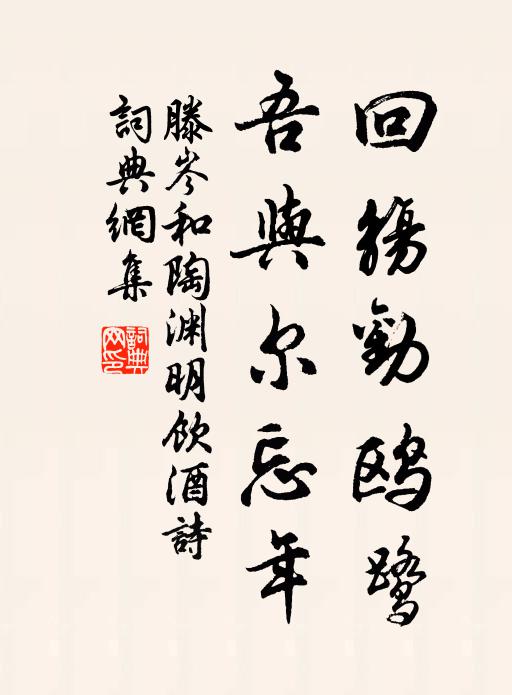 回觞勸鸥鹭
吾與尔忘年
滕岑和陶渊明飲酒詩
詞典網集
詞典网印